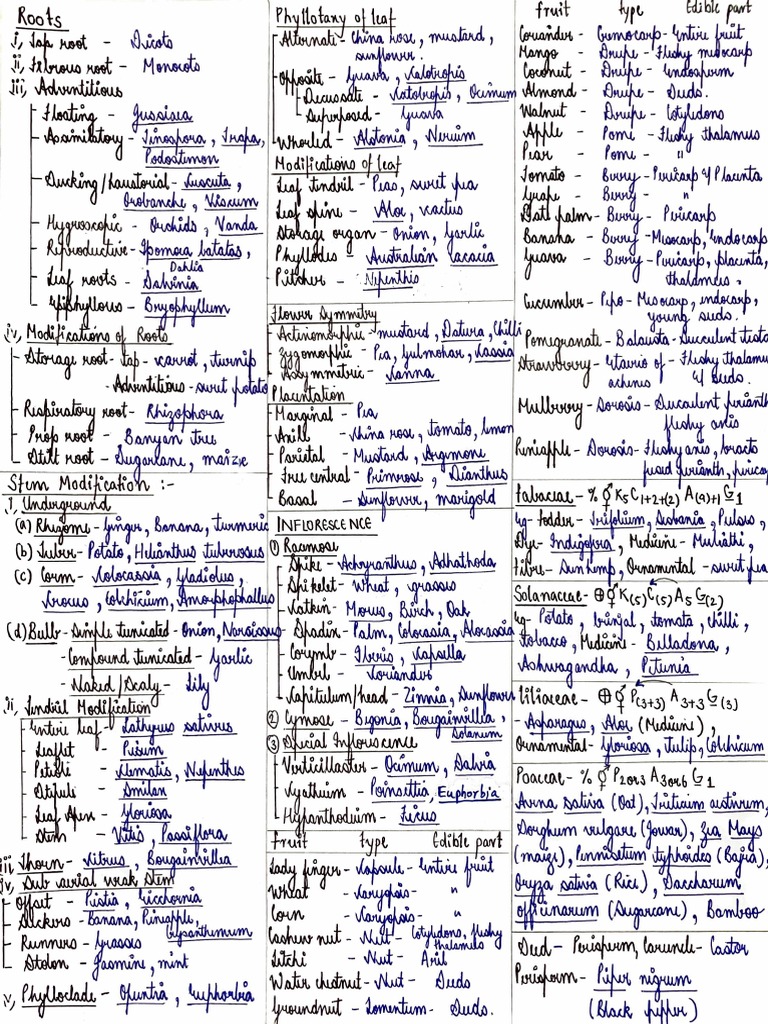 Roots
i, Tap root - Dicots
ii, Fibrous root - Monocots
iii, Adventitious
Floating - Jussiaea
Assimilatory - Tinospora, Trapa,
Podostemon
Sucking/Haustorial - Cuscuta,
Orobanche, Viscum
Hygroscopic - Orchids, Vanda
Reproductive - Ipomoea batatas,
Dahlia
Leaf roots -
Epiphyllous - Bryophyllum
iv, Modifications of Roots
Storage root - Tap - carrot, turnip
- Adventitious - sweet potato
Respiratory root - Rhizophora
Prop root - Banyan tree
Stilt root - Sugarcane, maize
Stem Modification :-
i, Underground
(a) Rhizome - Ginger, Banana, Turmeric
(b) Tuber - Potato, Helianthus tuberosus
(c) Corm - Colocassia, Gladiolus,
Crocus, Colchicium, Amorphophallus
(d) Bulb - Simple tunicated - Onion, Narcissus
- Compound tunicated - Garlic
- Naked/Scaly - Lily
ii, Tendril Modification
Entire leaf - Lathyrus sativus
Leaflet - Pisum
Petiole - Clematis, Nepenthes
Stipule - Smilax
Leaf Apex - Gloriosa
Stem - Vitis, Passiflora
iii Thorn - Citrus, Bougainvillea
iv, Sub aerial weak stem
Offset - Pistia, Eicchornia
Suckers - Banana, Pineapple,
Crysanthemum
Runners - Grasses
Stolon - Jasmine, mint
v, Phylloclade - Opuntia, Euphorbia
Phyllotaxy of leaf
Alternate - China rose, mustard,
sunflower.
Opposite - Guava, Calotropis
Decussate - Calotropis, Ocimum
Superposed - Guava
Whorled - Alstonia, Nerium
Modifications of leaf
Leaf tendril - Peas, sweet pea
Leaf spine - Aloe, cactus
Storage organ - Onion, Garlic
Phyllodes - Australian cacacia
Pitcher - Nepenthis
Flower Symmetry
Actinomorphic - mustard, Datura, Chilli
Zygomorphic - Pea, Gulmohar, Cassia
Assymmetric - Canna
Placentation
Marginal - Pea
Axill - China rose, tomato, lemon
Parietal - Mustard, Argemone
Free central - Primrose, Dianthus
Basal - Sunflower, marigold
INFLORESCENCE
① Racemose
Spike - Achyranthus, Adhathoda
Spikelet - Wheat, grasses
Catkin - Morus, Birch, Oak
Spadix - Palm, Colocassia, Alocassia
Corymb - Iberis, Capsella
Umbel - Coriander
Capitulum/head - Zinnia, Sunflower
② Cymose - Bigonia, Bougainvillea,
Solanum
③ Special Inflorescence
Verticillaster - Ocimum, Salvia
Cyathium - Poinsettia, Euphorbia
Hypanthodium - Ficus
fruit type Edible part
Lady finger - Capsule - Entire fruit
Wheat - Caryopsis - "
Corn - Caryopsis - "
Cashew nut - Nut - Cotyledons, fleshy
thalamus
Litchi - Nut - Aril
Water chestnut - Nut - Seeds
Groundnut - Lomentum - Seeds.
fruit type Edible part
Coriander - Cremocarp - Entire fruit
Mango - Drupe - Fleshy mesocarp
Coconut - Drupe - Endosperm
Almond - Drupe - Seeds.
Walnut - Drupe - Cotyledons
Apple - Pome - Fleshy thalamus
Pear - Pome - "
Tomato - Berry - Pericarp & Placenta
Grape - Berry - "
Date palm - Berry - Pericarp
Banana - Berry - Mesocarp, endocarp
Guava - Berry - Pericarp, placenta,
thalamus.
Cucumber - Pepo - Mesocarp, endocarp,
young seeds.
Pomegranate - Balausta - Succulent testa
Strawberry - Etaerio of - Fleshy thalamus
achenes & seeds.
Mulberry - Sorosis - Succulent perianth
fleshy axis
Pineapple - Sorosis - Fleshy axis, bracts
fused perianth, pericarp
Fabaceae - % ⚥ K5 C1+2+(2) A(9)+1 G1
eg - Fodder - Trifolium, Sesbania, Pulses,
Dye - Indigofera, Medicine - Muliathi,
Fibre - Sunhemp, Ornamental - sweet pea
Solanaceae - ⊕ ⚥ K(5) C(5) A5 G(2)
eg - Potato, brinjal, tomato, chilli,
tobacco, Medicine - Belladona,
Ashwagandha, Petunia
Liliaceae - ⊕ ⚥ P(3+3) A3+3 G(3)
- Asparagus, Aloe (Medicine),
Ornamental - Gloriosa, Tulip, Colchicum
Poaceae - % ⚥ P2or3 A3or6 G1
Avena sativa (Oat), Triticum aestivum,
Sorghum vulgare (Jowar), Zea Mays
(maize), Pennisetum typhoides (Bajra),
Oryza sativa (Rice), Saccharum
officinarum (Sugarcane), Bamboo
Seed - Perisperm, Caruncle - Castor
Perisperm - Piper nigrum
(Black pepper)